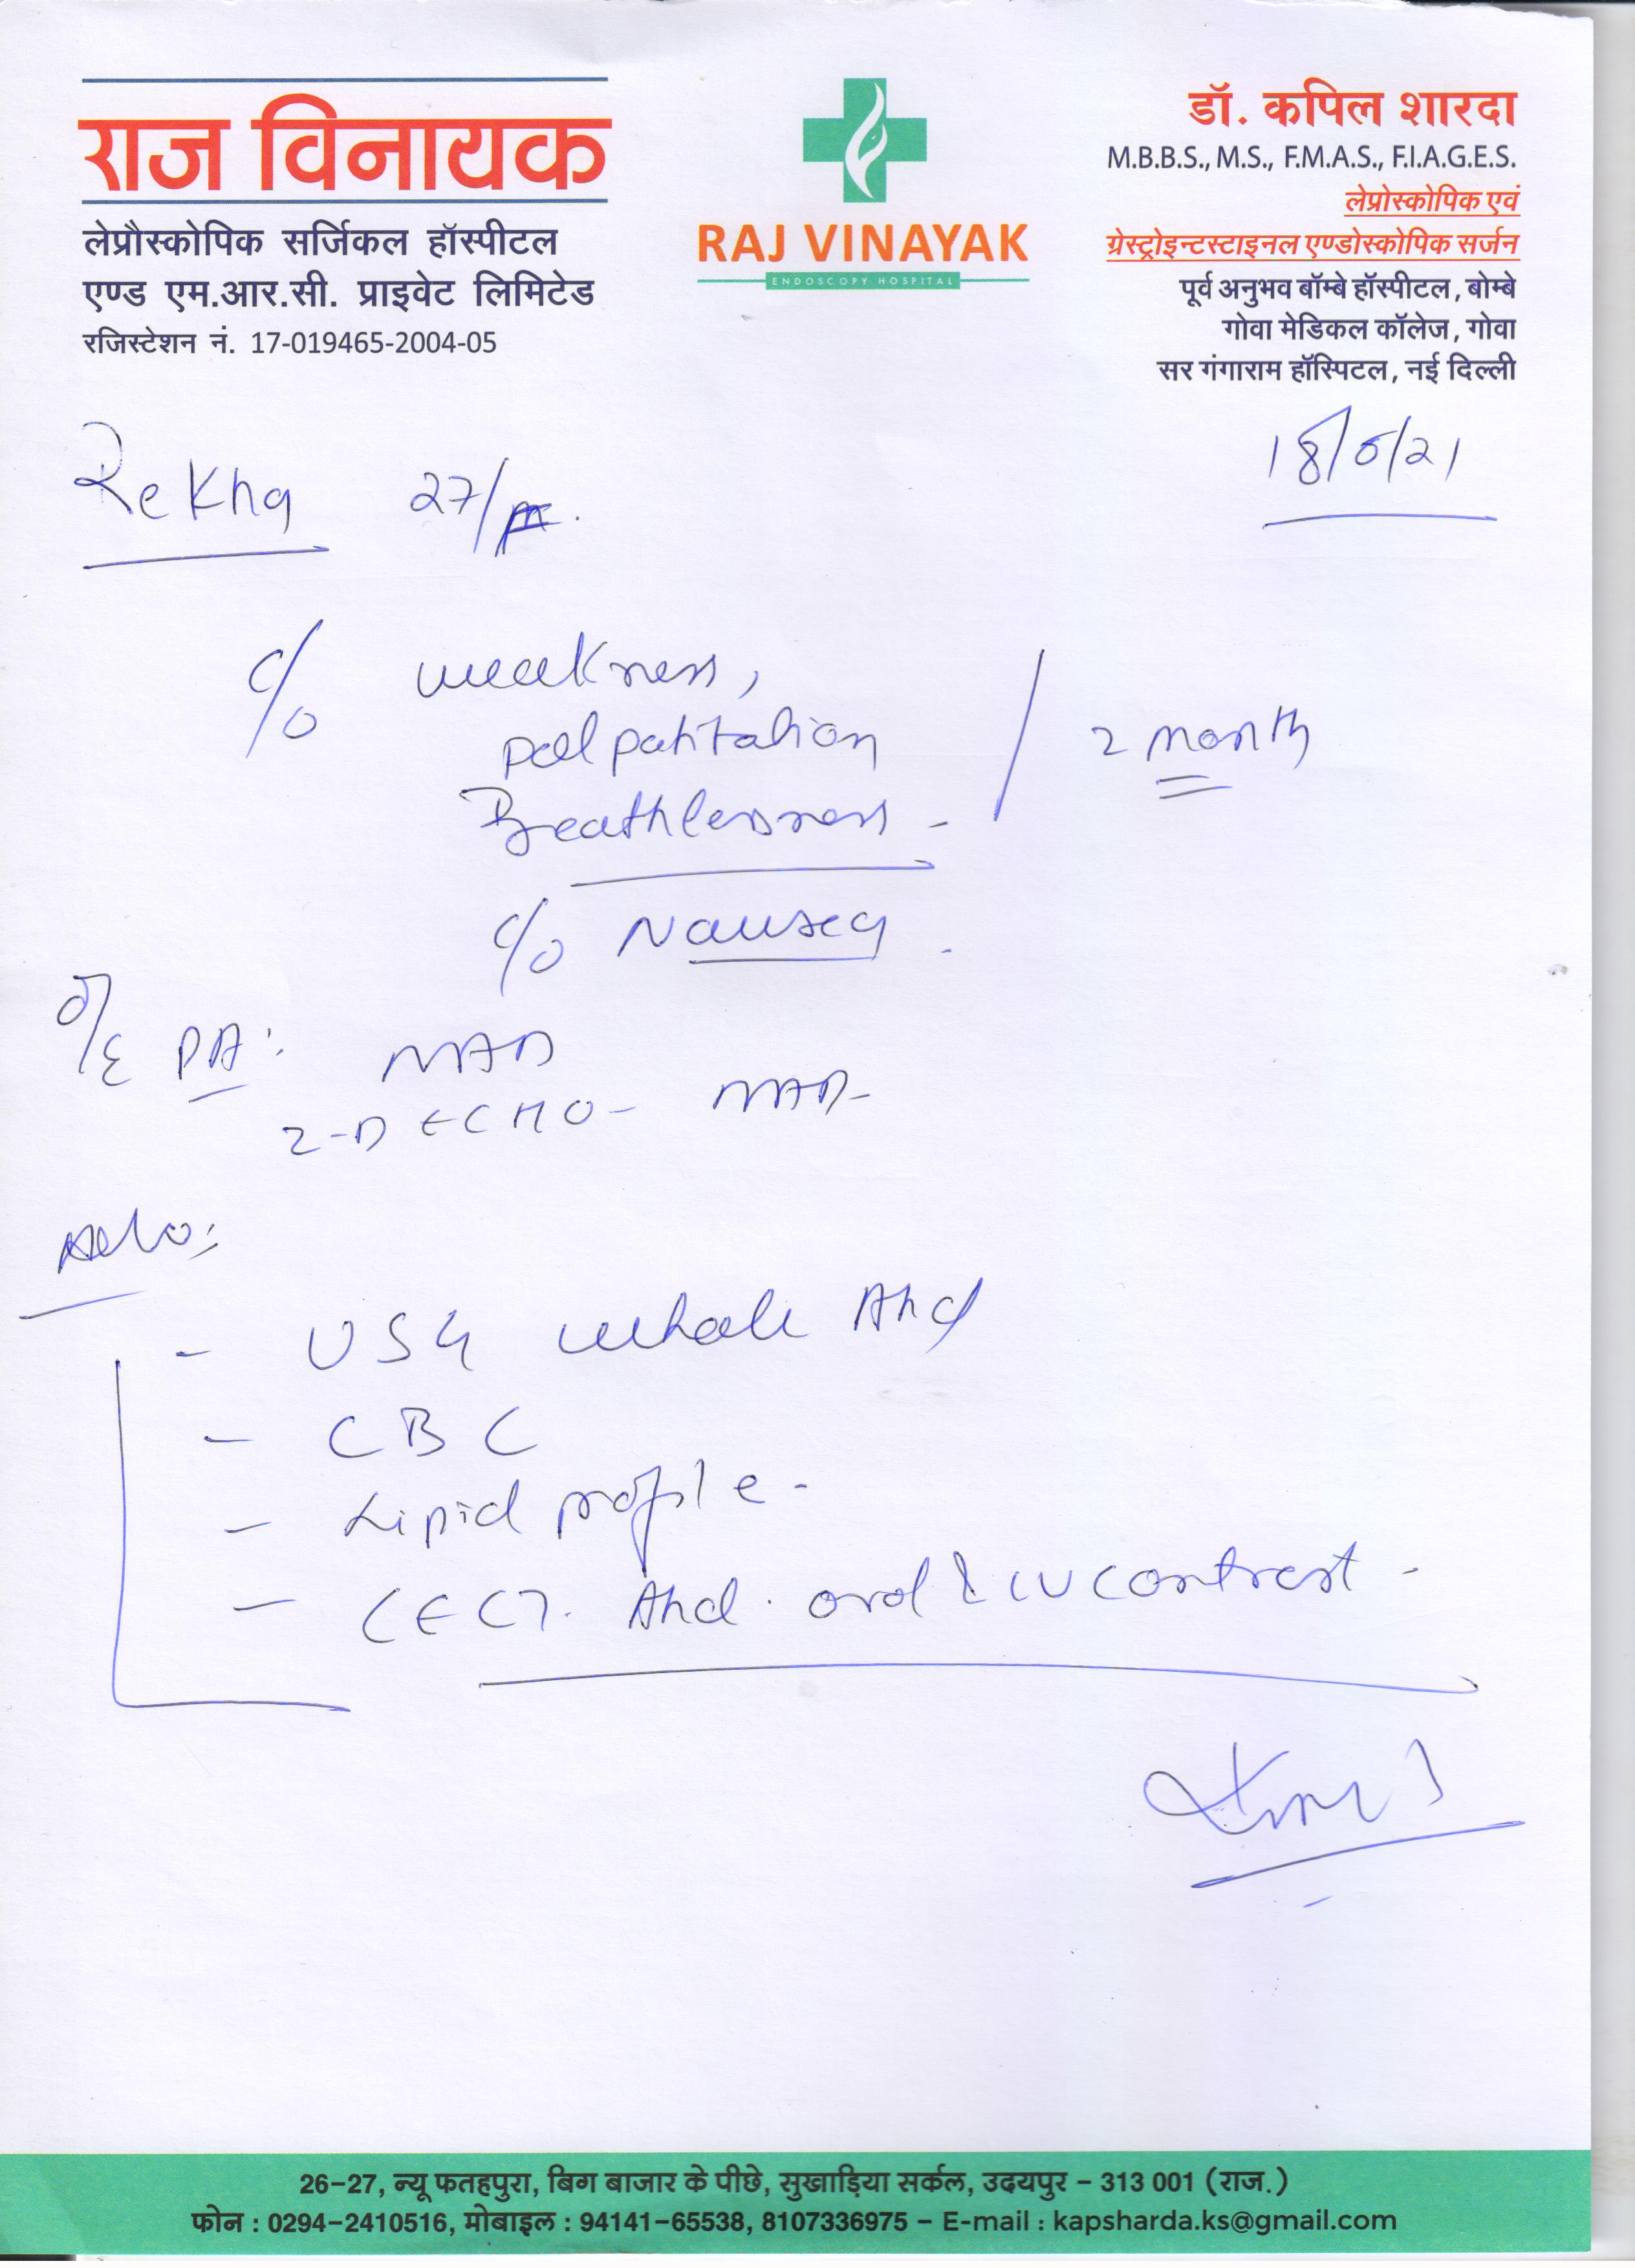 राज विनायक
लेप्रौस्कोपिक सर्जिकल हॉस्पीटल
एण्ड एम.आर.सी. प्राइवेट लिमिटेड
रजिस्टेशन नं. 17-019465-2004-05
RAJ VINAYAK
ENDOSCOPY HOSPITAL
डॉ. कपिल शारदा
M.B.B.S., M.S., F.M.A.S., F.I.A.G.E.S.
लेप्रोस्कोपिक एवं
ग्रेस्ट्रोइन्टस्टाइनल एण्डोस्कोपिक सर्जन
पूर्व अनुभव बॉम्बे हॉस्पीटल, बोम्बे
गोवा मेडिकल कॉलेज, गोवा
सर गंगाराम हॉस्पिटल, नई दिल्ली
18/6/21
Rekha 27/F.
c/o weakness,
palpatitation / 2 month
Breathlessness -
c/o Nausea.
O/E PA: NAD
2-D ECHO - NAD-
- USG whole Abd
- CBC
- Lipid profile -
- CECT. Abd. oral & IV contrast -
26-27, न्यू फतहपुरा, बिग बाजार के पीछे, सुखाड़िया सर्कल, उदयपुर - 313 001 (राज.)
फोन : 0294-2410516, मोबाइल : 94141-65538, 8107336975 - E-mail : kapsharda.ks@gmail.com